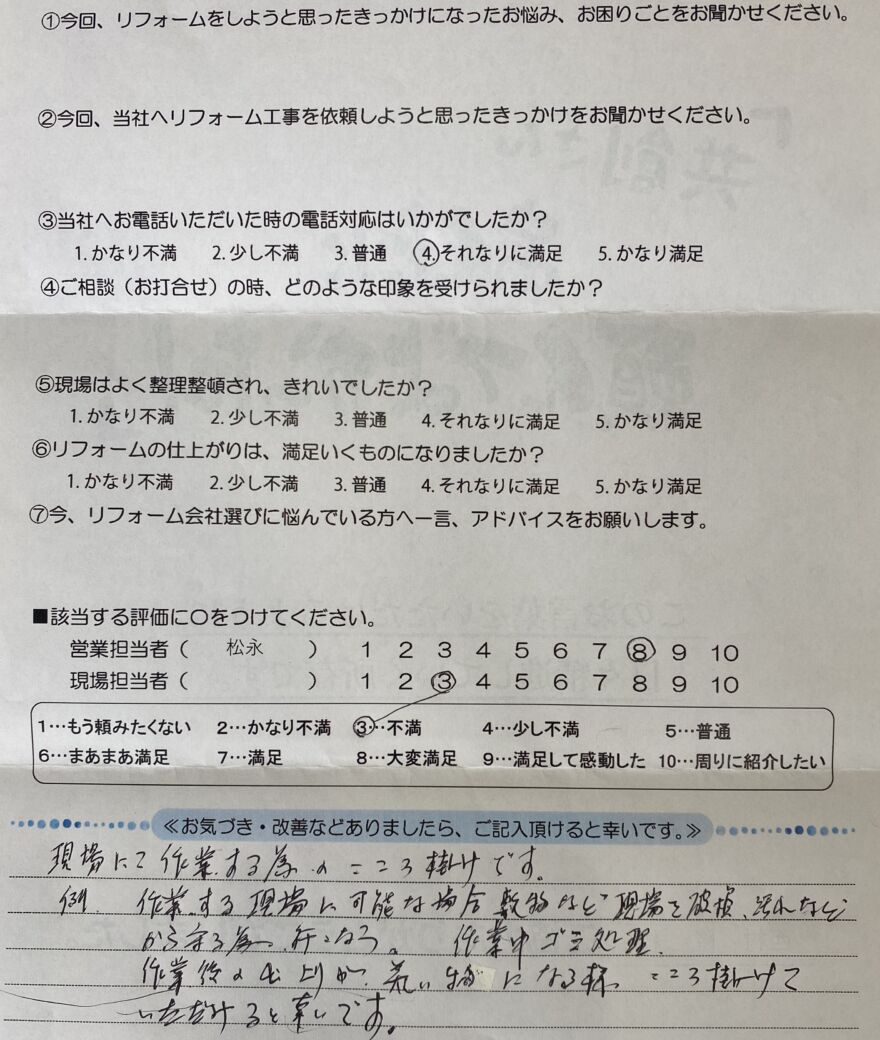 ①今回、リフォームをしようと思ったきっかけになったお悩み、お困りごとをお聞かせください。
②今回、当社へリフォーム工事を依頼しようと思ったきっかけをお聞かせください。
③当社へお電話いただいた時の電話対応はいかがでしたか？
1. かなり不満 2. 少し不満 3. 普通 4. それなりに満足 5. かなり満足
④ご相談（お打合せ）の時、どのような印象を受けられましたか？
⑤現場はよく整理整頓され、きれいでしたか？
1. かなり不満 2. 少し不満 3. 普通 4. それなりに満足 5. かなり満足
⑥リフォームの仕上がりは、満足いくものになりましたか？
1. かなり不満 2. 少し不満 3. 普通 4. それなりに満足 5. かなり満足
⑦今、リフォーム会社選びに悩んでいる方へ一言、アドバイスをお願いします。
■該当する評価に〇をつけてください。
営業担当者（ 松永 ） 1 2 3 4 5 6 7 8 9 10
現場担当者（ ） 1 2 3 4 5 6 7 8 9 10
1…もう頼みたくない 2…かなり不満 3…不満 4…少し不満 5…普通
6…まあまあ満足 7…満足 8…大変満足 9…満足して感動した 10…周りに紹介したい
≪お気づき・改善などありましたら、ご記入頂けると幸いです。≫
現場にて作業する為のこころ掛けです。
例 作業する現場に可能な場合敷物など現場を破損、汚れなど
から守る為、行こなう。 作業中ゴミ処理
作業後の仕上りが になる様 こころ掛けて
いただけると幸いです。